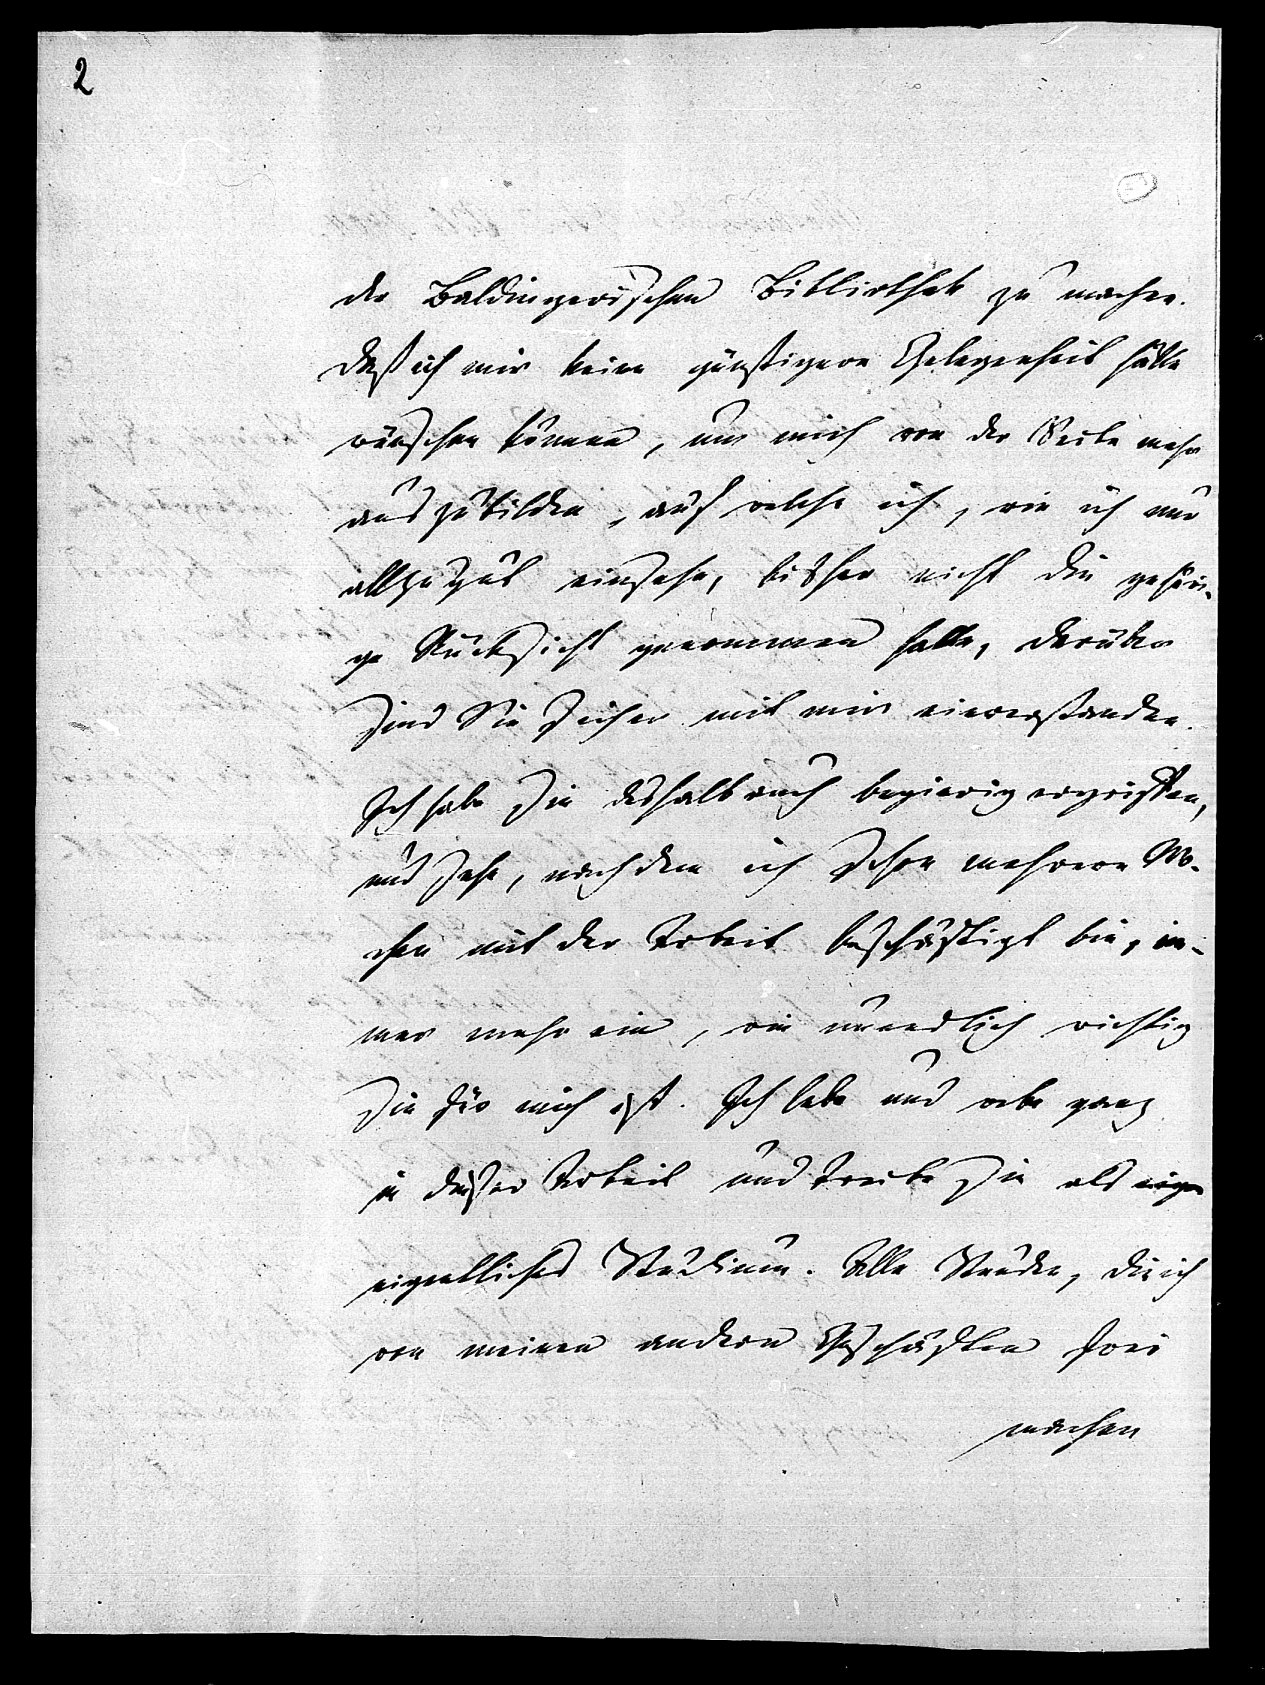 2
der Baldingerischen Bibliothek zu machen.
Daß ich mir keine günstigere Gelegenheit hätte
wünschen können, um mich von der Seite mehr
auszubilden, auf welche ich, wie ich nur
allzugut einsehe, bisher nicht die gehöri-
ge Rücksicht genommen hatte, darüber
sind Sie sicher mit mir einverstanden.
Ich habe sie deshalb auch begierig ergriffen,
und sehe, nachdem ich schon mehrere Wo-
chen mit der Arbeit beschäftigt bin, im-
mer mehr ein, wie unendlich wichtig
sie für mich ist. Ich lebe und webe ganz
in dieser Arbeit und treibe sie als
eigentliches Studium. Alle Stunden, die ich
von meinen andern Geschäften frei
machen